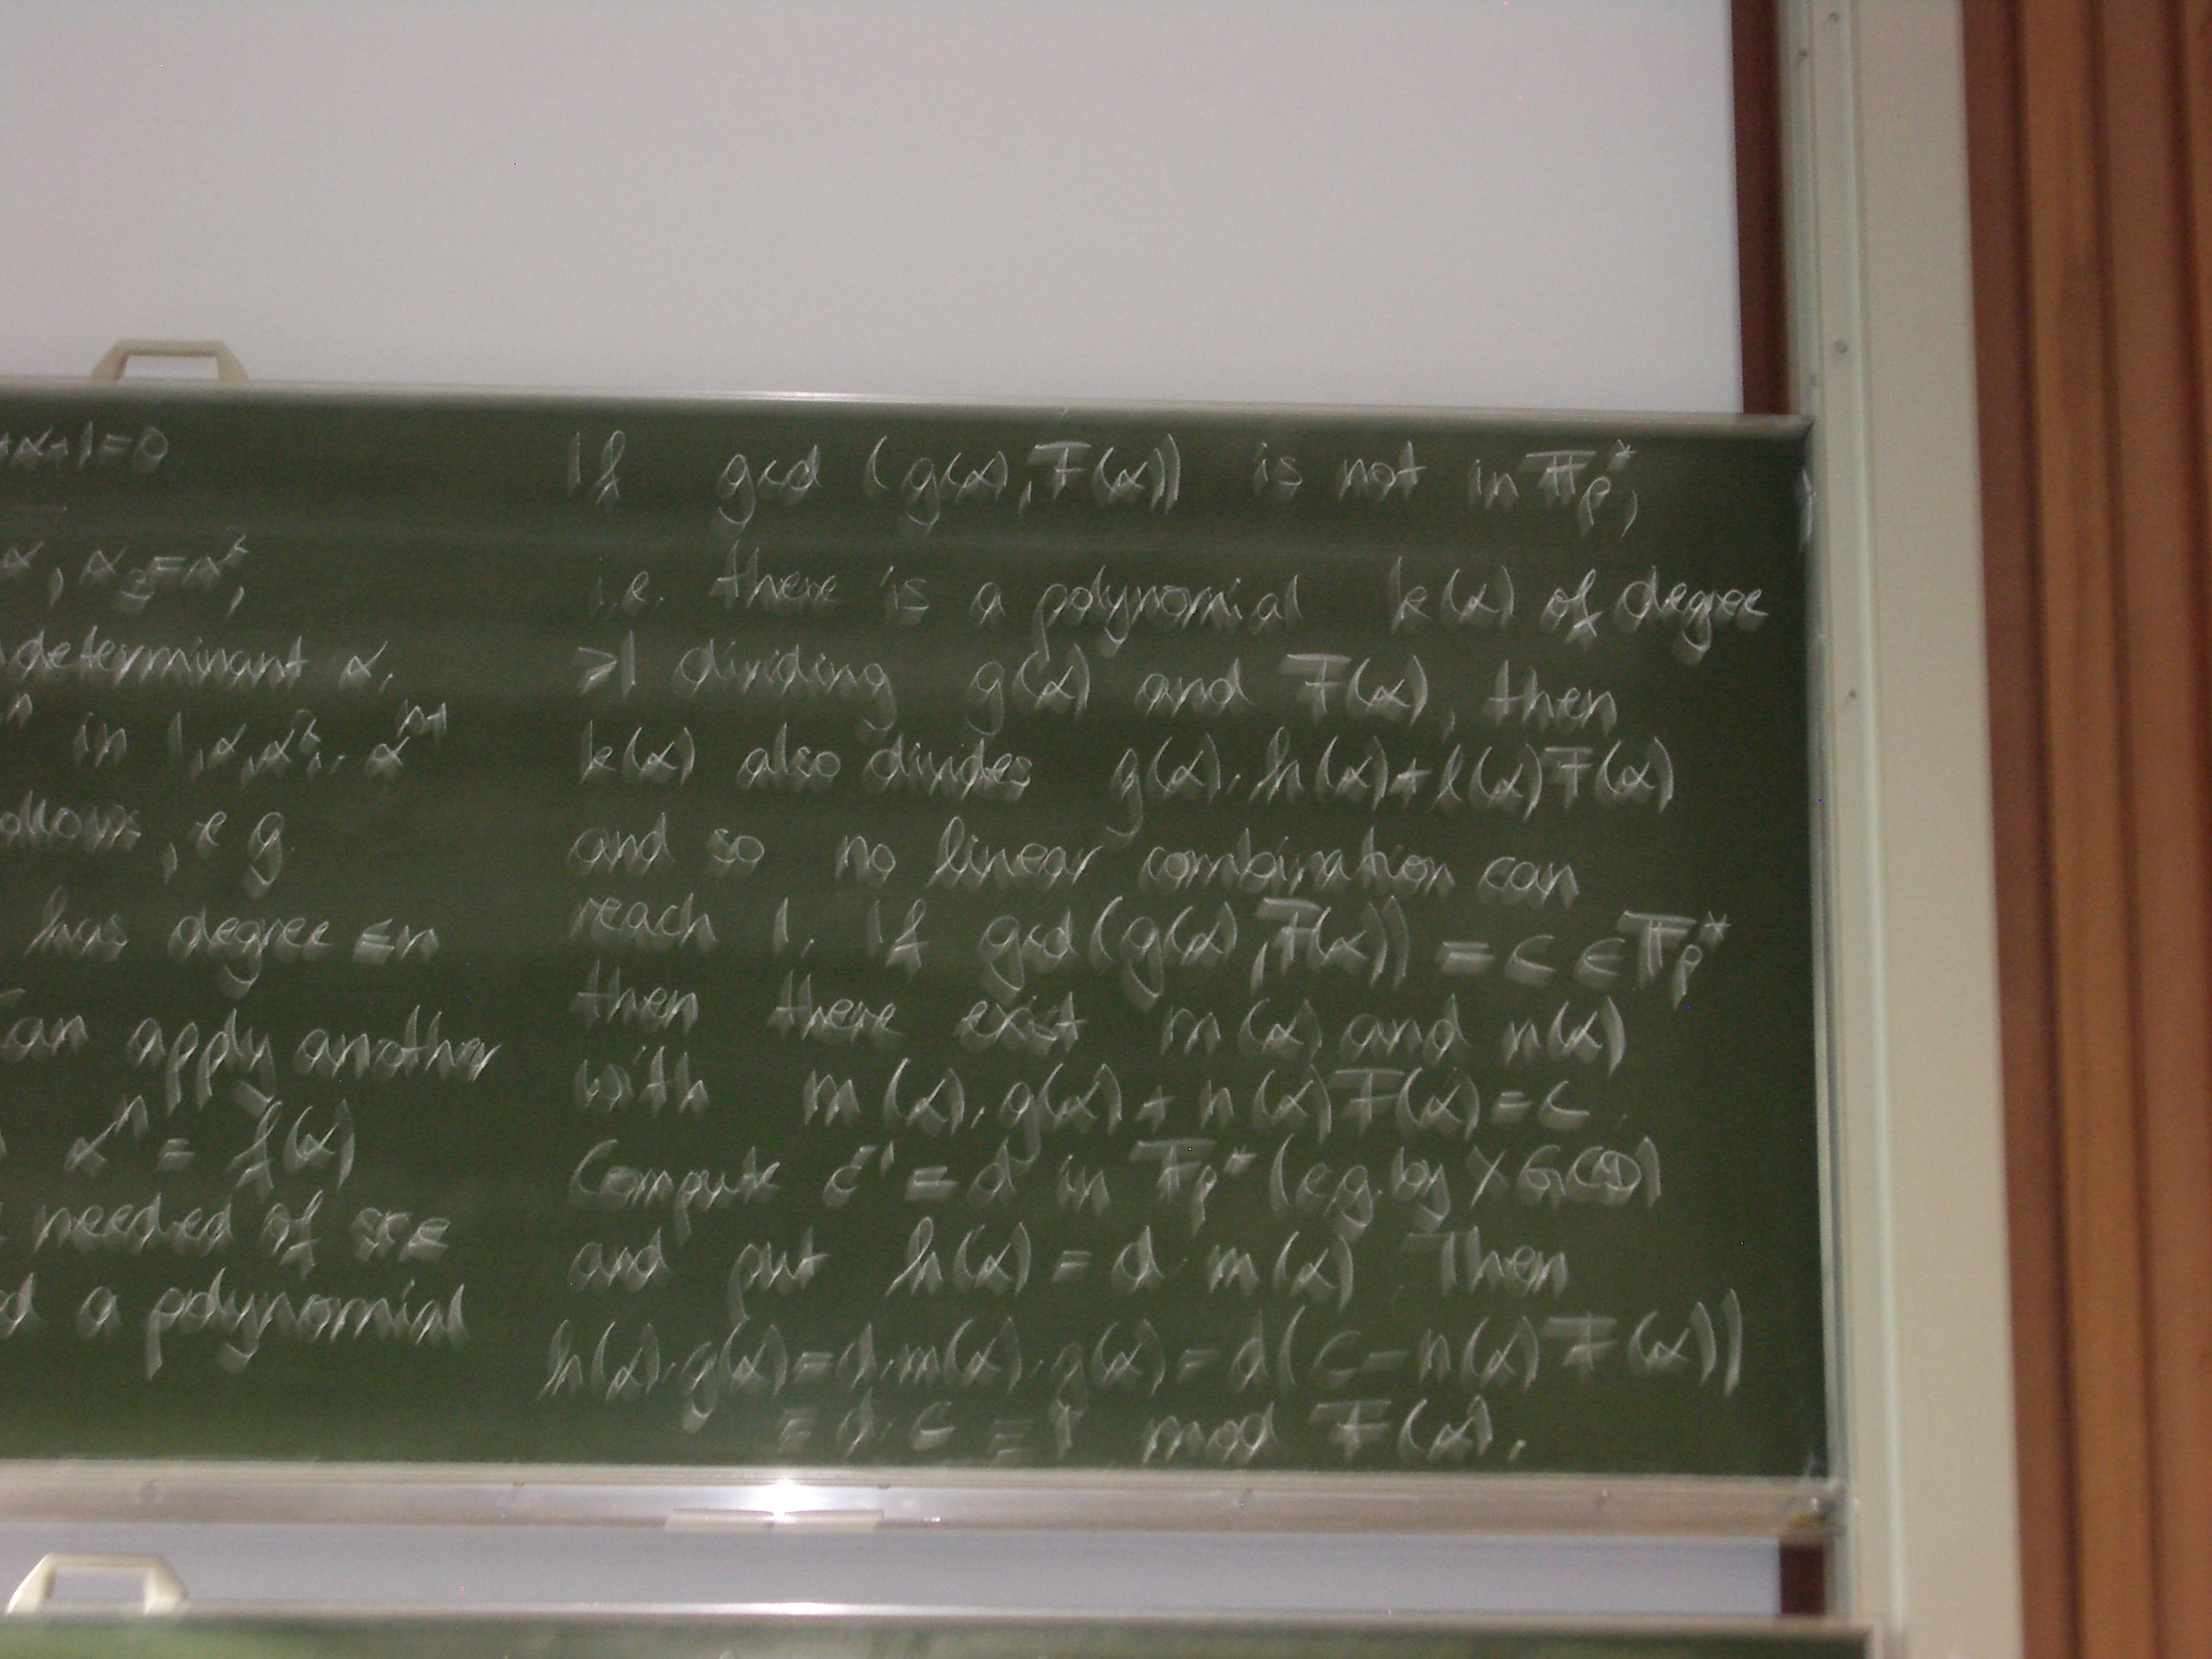 +α+1=0
α, α₃=α²,
determinant α.
ⁿ in 1,α,α²,..α^{n-1}
ollows, e g.
has degree ≤n
can apply another
αⁿ = f(α)
needed of size
d a polynomial
If gcd (g(α),F(α)) is not in 𝔽ₚ*,
i.e. there is a polynomial k(α) of degree
>1 dividing g(α) and F(α), then
k(α) also divides g(α).h(α)+l(α)F(α)
and so no linear combination can
reach 1. If gcd(g(α),F(α)) = c ∈ 𝔽ₚ*
then there exist m(α) and n(α)
with m(α).g(α)+n(α)F(α)=c.
Compute c⁻¹ = d in 𝔽ₚ* (e.g. by XGCD)
and put h(α) = d.m(α). Then
h(α).g(α)=d.m(α).g(α)=d(c-n(α)F(α))
≡ d.c = 1 mod F(α).